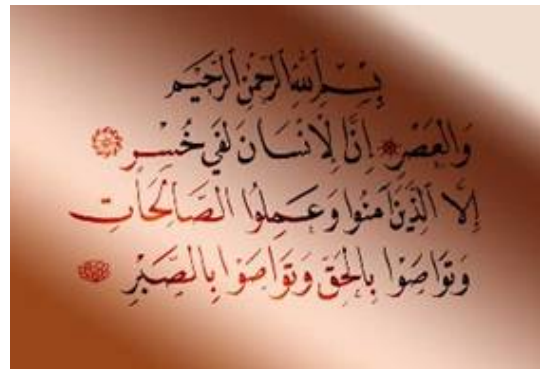 بِسْمِ اللهِ الرَّحْمٰنِ الرَّحِيْمِ
وَالْعَصْرِ ۝ إِنَّ الْإِنْسَانَ لَفِي خُسْرٍ ۝
إِلَّا الَّذِينَ آمَنُوا وَعَمِلُوا الصَّالِحَاتِ
وَتَوَاصَوْا بِالْحَقِّ وَتَوَاصَوْا بِالصَّبْرِ ۝